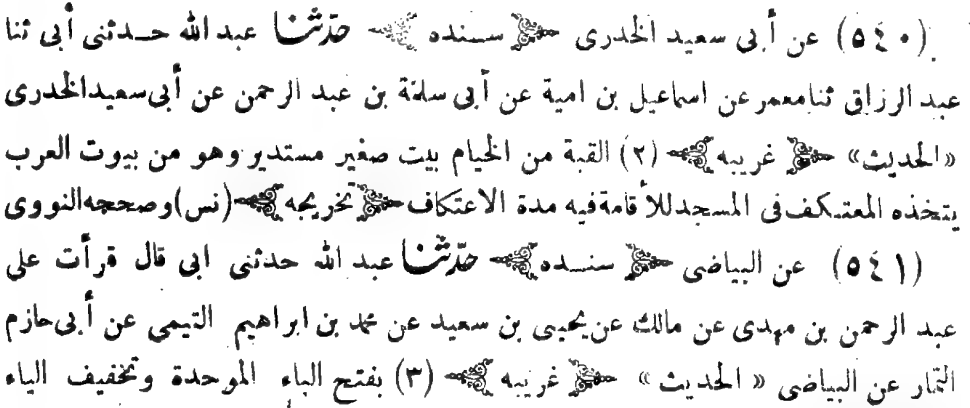 (٥٤٠) عن أبى سعيد الخدرى ﴿ سنده ﴾ حدّثنا عبد الله حدثنى أبى ثنا
عبد الرزاق ثنا معمر عن اسماعيل بن امية عن أبى سلمة بن عبد الرحمن عن أبى سعيد الخدرى
«الحديث» ﴿ غريبه ﴾ (٢) القبة من الخيام بيت صغير مستدير وهو من بيوت العرب
يتخذه المعتكف فى المسجد للأقامة فيه مدة الاعتكاف ﴿ تخريجه ﴾ (نس) وصححه النووى
(٥٤١) عن البياضى ﴿ سنده ﴾ حدّثنا عبد الله حدثنى ابى قال قرأت على
عبد الرحمن بن مهدى عن مالك عن يحيى بن سعيد عن محمد بن ابراهيم التيمى عن أبى حازم
التمار عن البياضى « الحديث » ﴿ غريبه ﴾ (٣) بفتح الباء الموحدة وتخفيف الياء